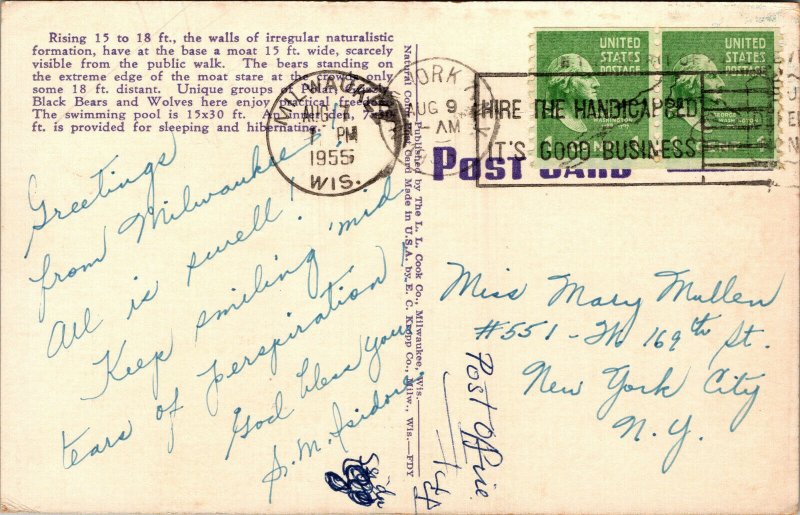 Rising 15 to 18 ft., the walls of irregular naturalistic
formation, have at the base a moat 15 ft. wide, scarcely
visible from the public walk. The bears standing on
the extreme edge of the moat stare at the crowds only
some 18 ft. distant. Unique groups of Polar,
Black Bears and Wolves here enjoy practical freedom.
The swimming pool is 15x30 ft.
ft. is provided for sleeping and hibernating.
MILWAUKEE
PM
1955
WIS.
YORK
AUG 9
AM
HIRE THE HANDICAPPED
IT'S GOOD BUSINESS
UNITED
STATES
POSTAGE
UNITED
STATES
POSTAGE
POST CARD
Published by The L. L. Cook Co., Milwaukee, Wis.
Natural Color Card Made in U.S.A. by E. C. Kropp Co., Milw., Wis.—FDY
Greetings
from Milwaukee!
All is swell!
Keep smiling 'mid
tears of perspiration
God bless you
S. M. Isidore
Miss Mary Mullen
#551- W 169th St.
New York City
N.Y.
Post Office